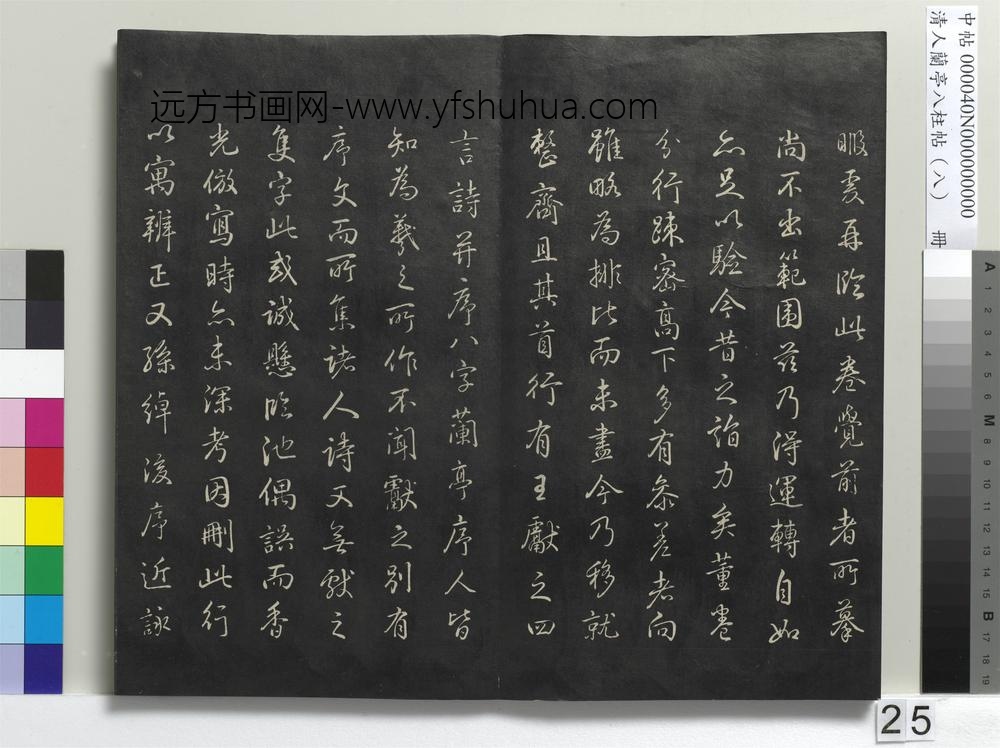 暇復再臨此卷覺前者所摹
尚不出範圍茲乃得運轉自如
亦足以驗今昔之詣力矣董卷
分行疎密高下多有參差者向
雖略為排比而未盡今乃移就
整齊且其首行有王獻之四
言詩并序八字蘭亭序人皆
知為羲之所作不聞獻之別有
序文而所集諸人詩又無獻之
隻字此或誠懸臨池偶誤而香
光倣寫時亦未深考因刪此行
以寓辨正又孫綽後序近詠
远方书画网-www.yfshuhua.com
中帖 000040N000000000
清人蘭亭八柱帖（八） 冊
25
A 1 2 3 4 5 6 M 8 9 10 11 12 13 14 15 B 17 18 19